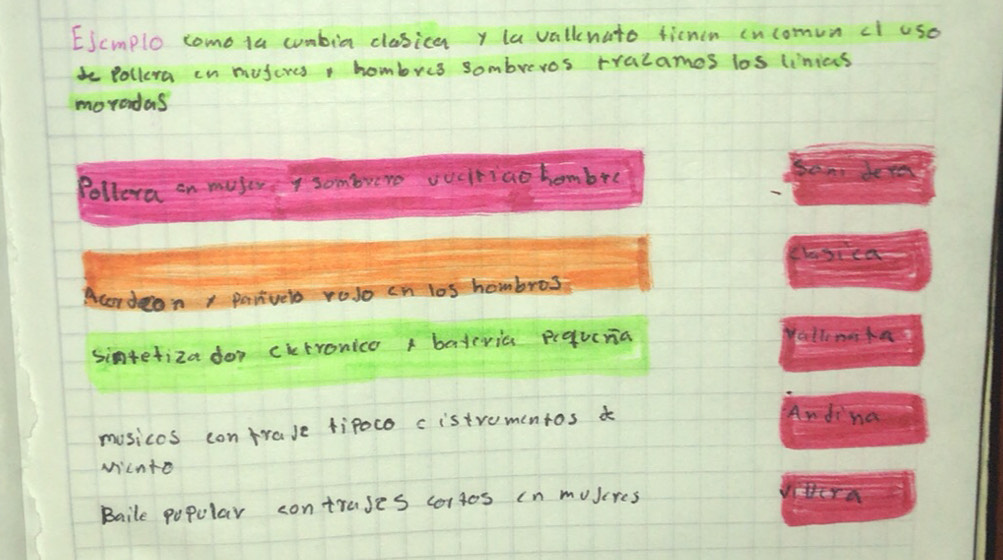 Ejemplo como la cumbia clasica y la vallenato tienen en comun el uso
de Pollera en mujeres y hombres sombreros trazamos los linias
moradas
Pollera en mujer y sombrero hombre
Sonidera
Acordeon y pañuelo rojo en los hombros
clasica
Sintetizador eletronico y bateria pequeña
Vallenata
musicos con traje tipoco e istrumentos de
viento
Andina
Baile popular con trajes cortos en mujeres
Villera